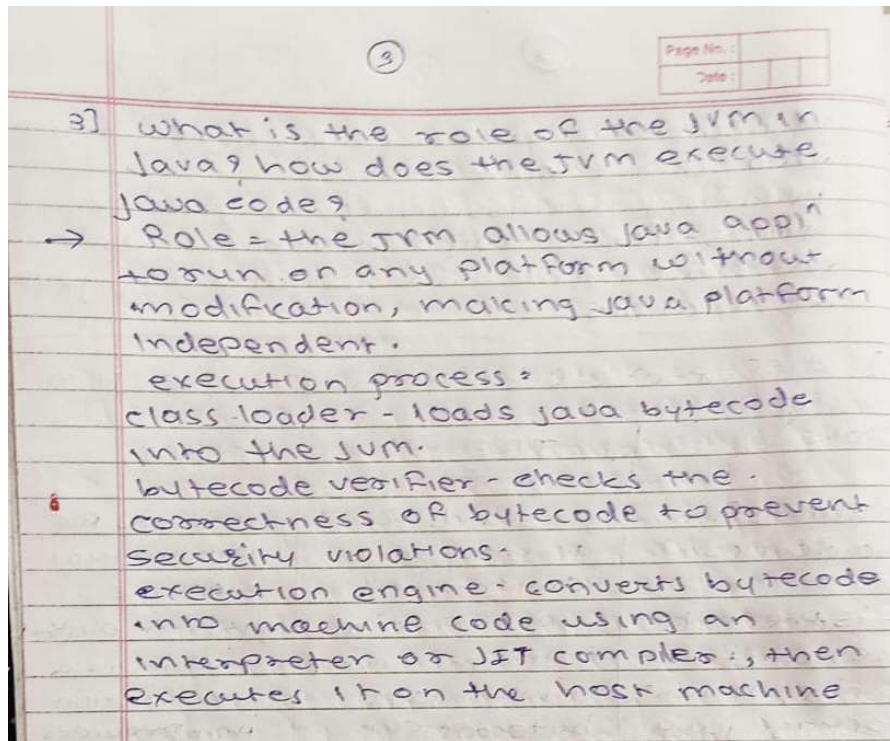 3
Page No. :
Date :
3] what is the role of the JVM in
Java? how does the JVM execute
java code?
→ Role = the JVM allows java appln
to run on any platform without
modification, making java platform
independent.
execution process :
class loader - loads java bytecode
into the JVM.
bytecode verifier - checks the
correctness of bytecode to prevent
security violations.
execution engine - converts bytecode
into machine code using an
interpreter or JIT compler, then
executes it on the host machine